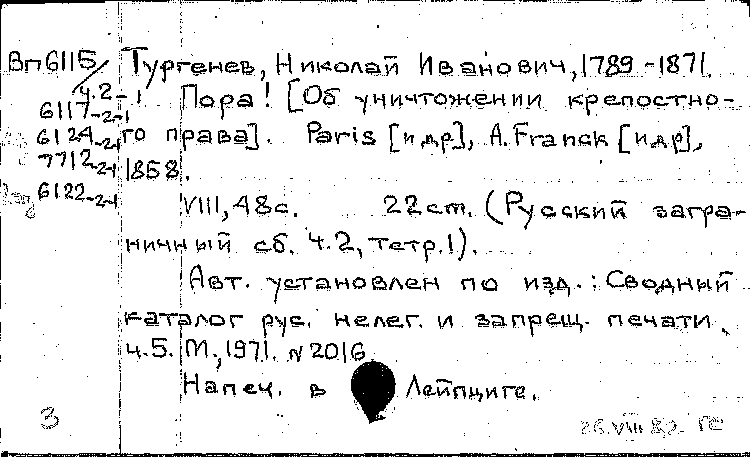 Вп6115/4.2-1 Тургенев, Николай Иванович, 1789-1871.
6117-2-1 Пора! [Об уничтожении крепостно-
6124-2-1 го права]. Paris [и др], A. Franck [и др],
7712-2-1 1858.
6122-2-1 VIII, 48с. 22 cm. (Русский загра-
ничный сб. Ч.2, тетр.1).
Авт. установлен по изд.: Сводный
каталог рус. нелег. и запрещ. печати.
ч.5. М., 1971. N 2016.
Напеч. в Лейпциге.
3